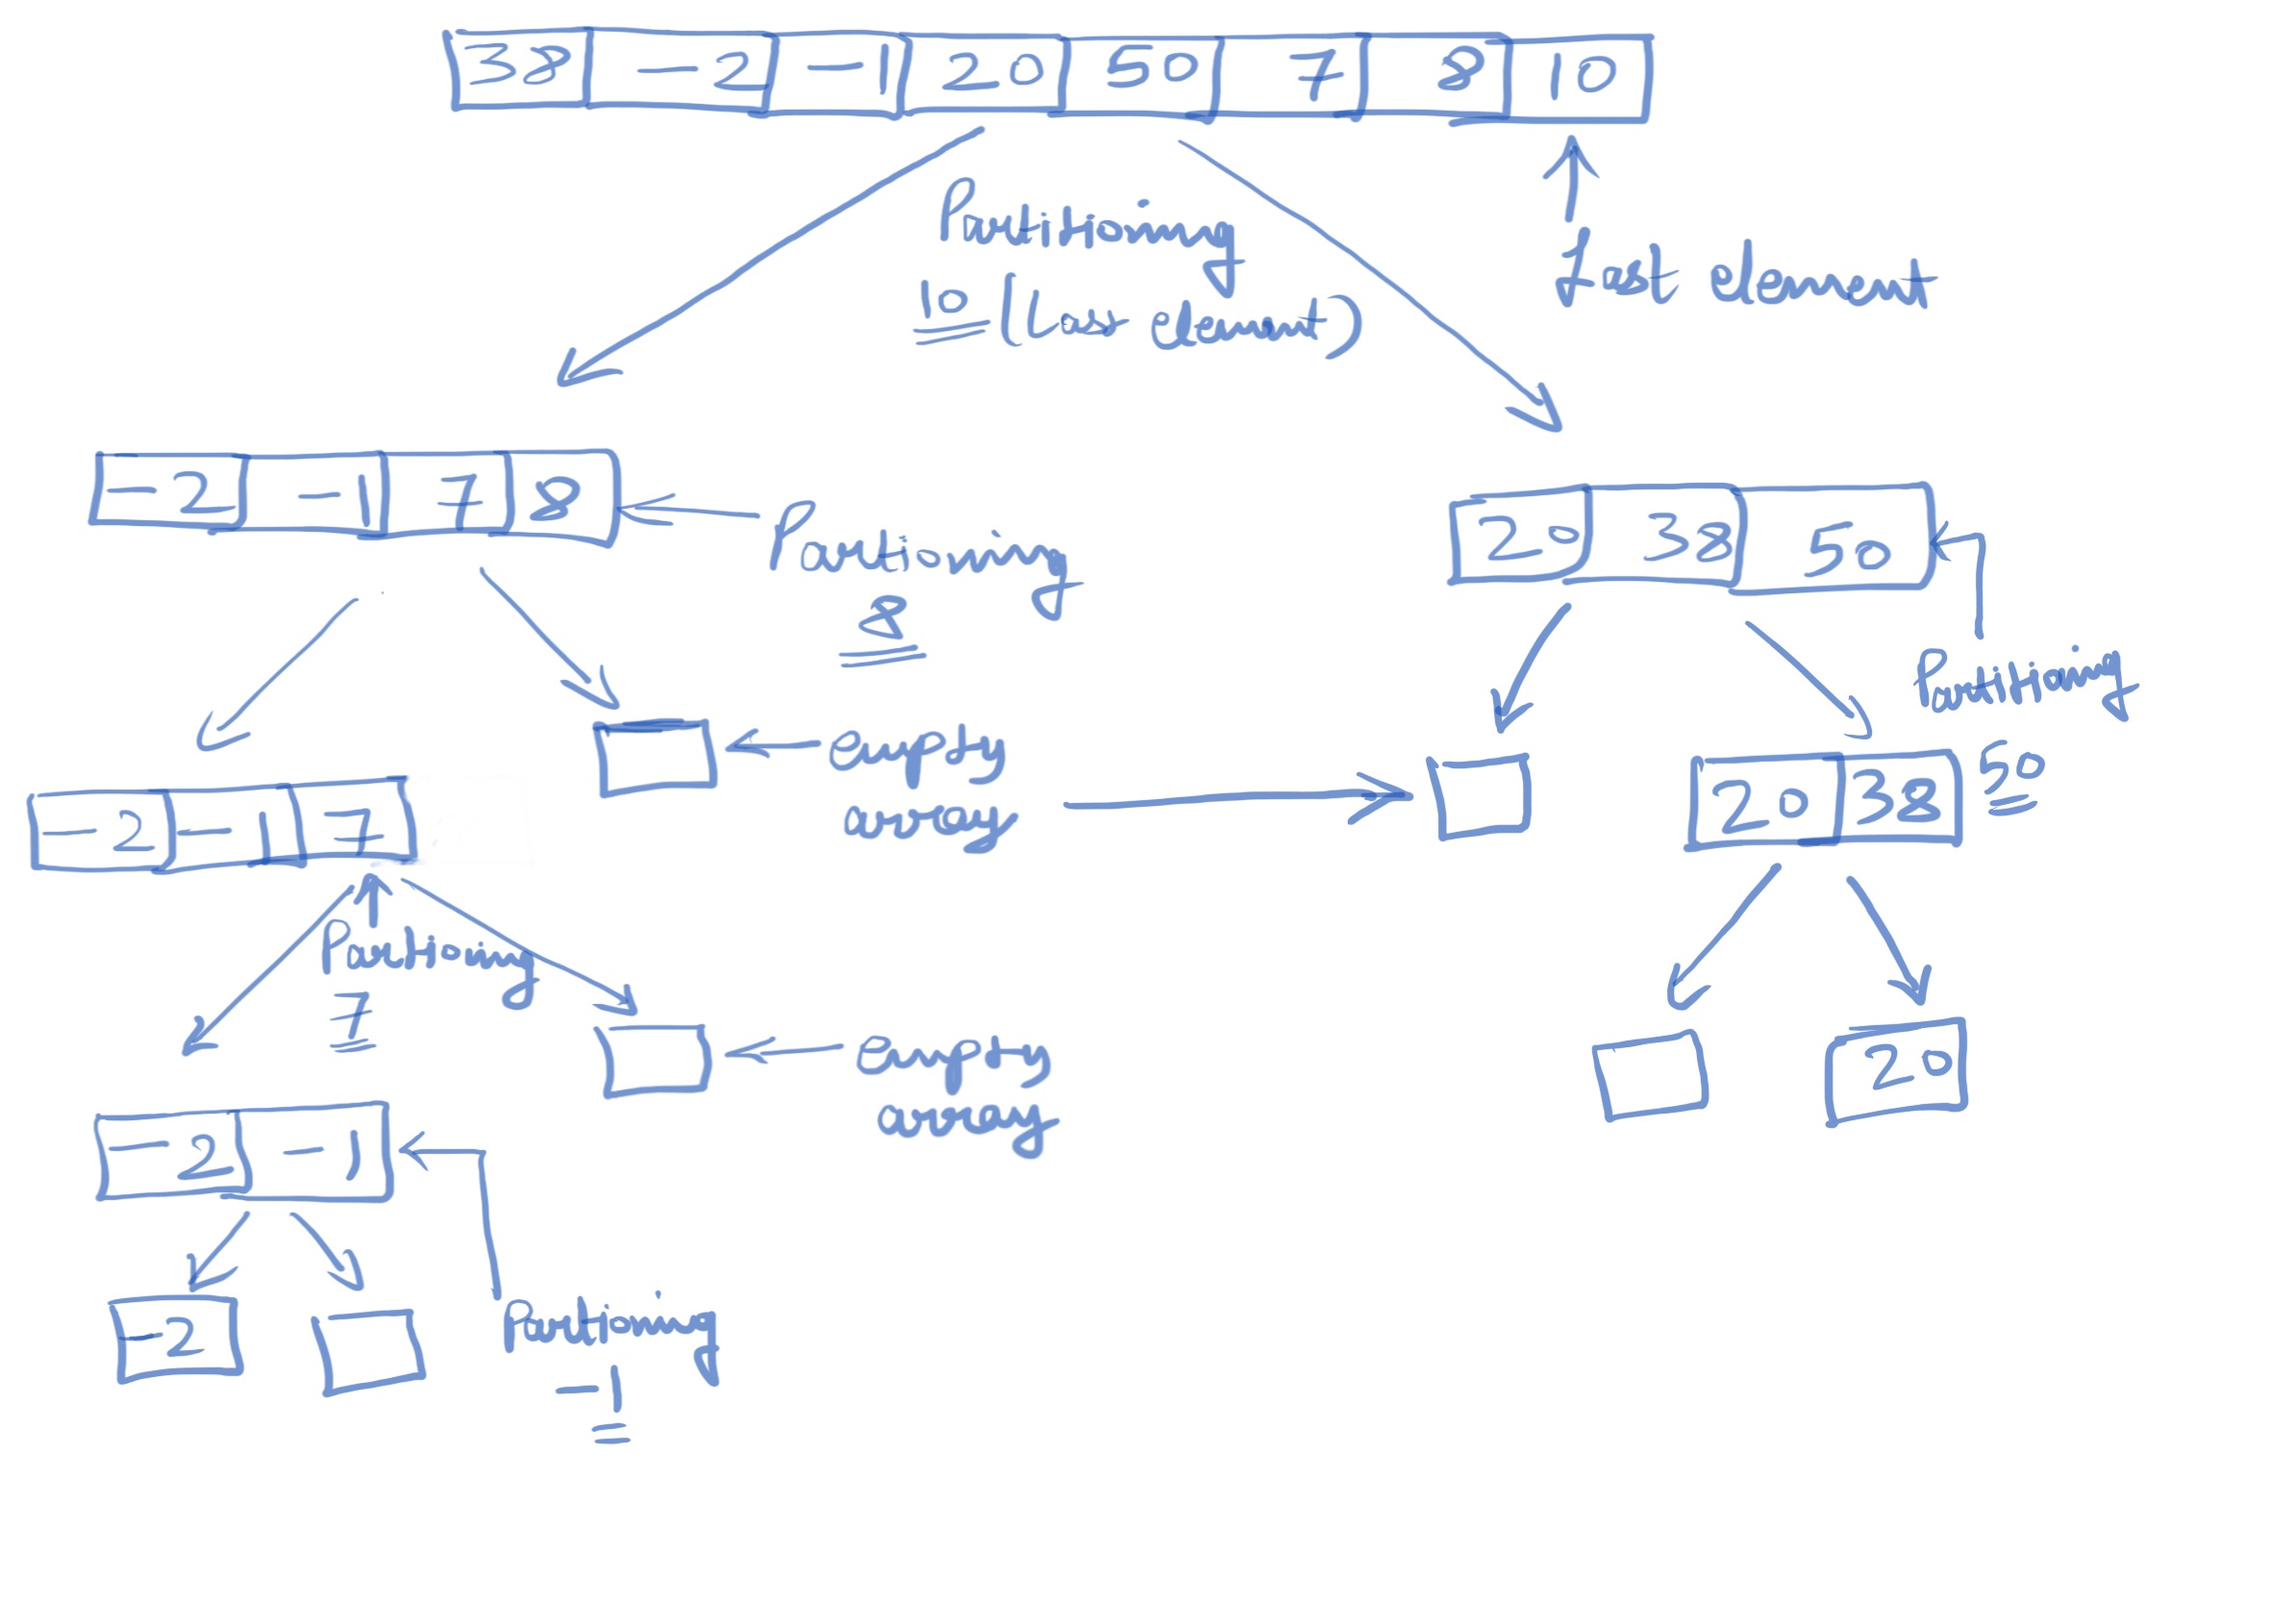 38 -2 -1 20 50 7 8 10
Partitioning
10 (Last element)
Last element
-2 -1 7 8
Partitioning
8
20 38 50
Partitioning
50
empty
array
-2 -1 7
20 38
Partioning
7
empty
array
20
-2 -1
-2
Partioning
-1